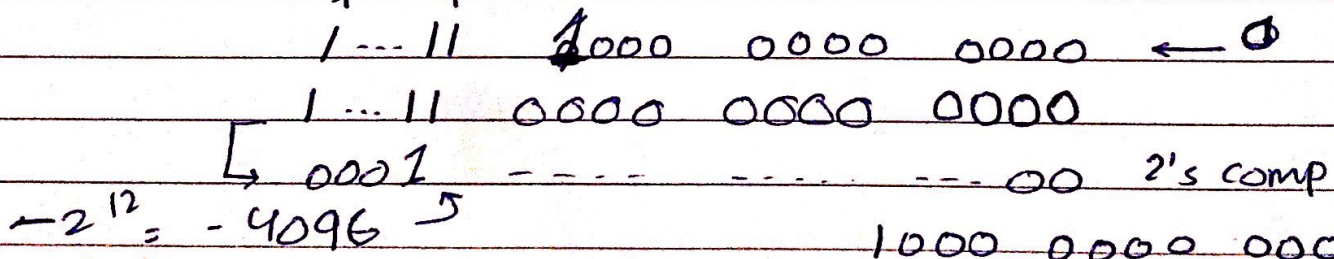 1 --- 11 1000 0000 0000 ← 0
1 ... 11 0000 0000 0000
↳ 0001 ---- ----- --- 00 2's comp
-2^12 = - 4096
1000 0000 000